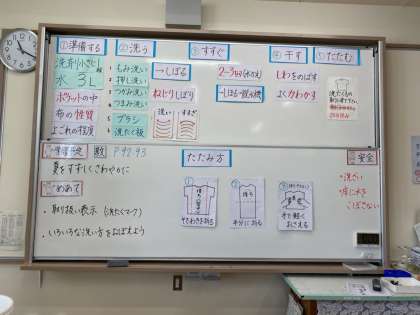 ①準備する
洗剤小さじ
水 3L
ポケットの中
布の性質
よごれの程度
②洗う
もみ洗い
押し洗い
つかみ洗い
つまみ洗い
ブラシ
洗たく板
③すすぐ
→しぼる
ねじりしぼり
洗い
すすぎ
2~3回(水の)
→しぼる→
④干す
しわをのばす
よくかわかす
⑤たたむ
洗たくもの
数 P92 93
夏をすずしくさわやかに
めあて
・取り扱い表示(洗たくマーク)
・いろいろな洗い方をおぼえよう
たたみ方
①
そでわきを折る
②
半分に折る
③
手で軽く
おさえる
安全
・洗ざい
・床に水を
こぼさない